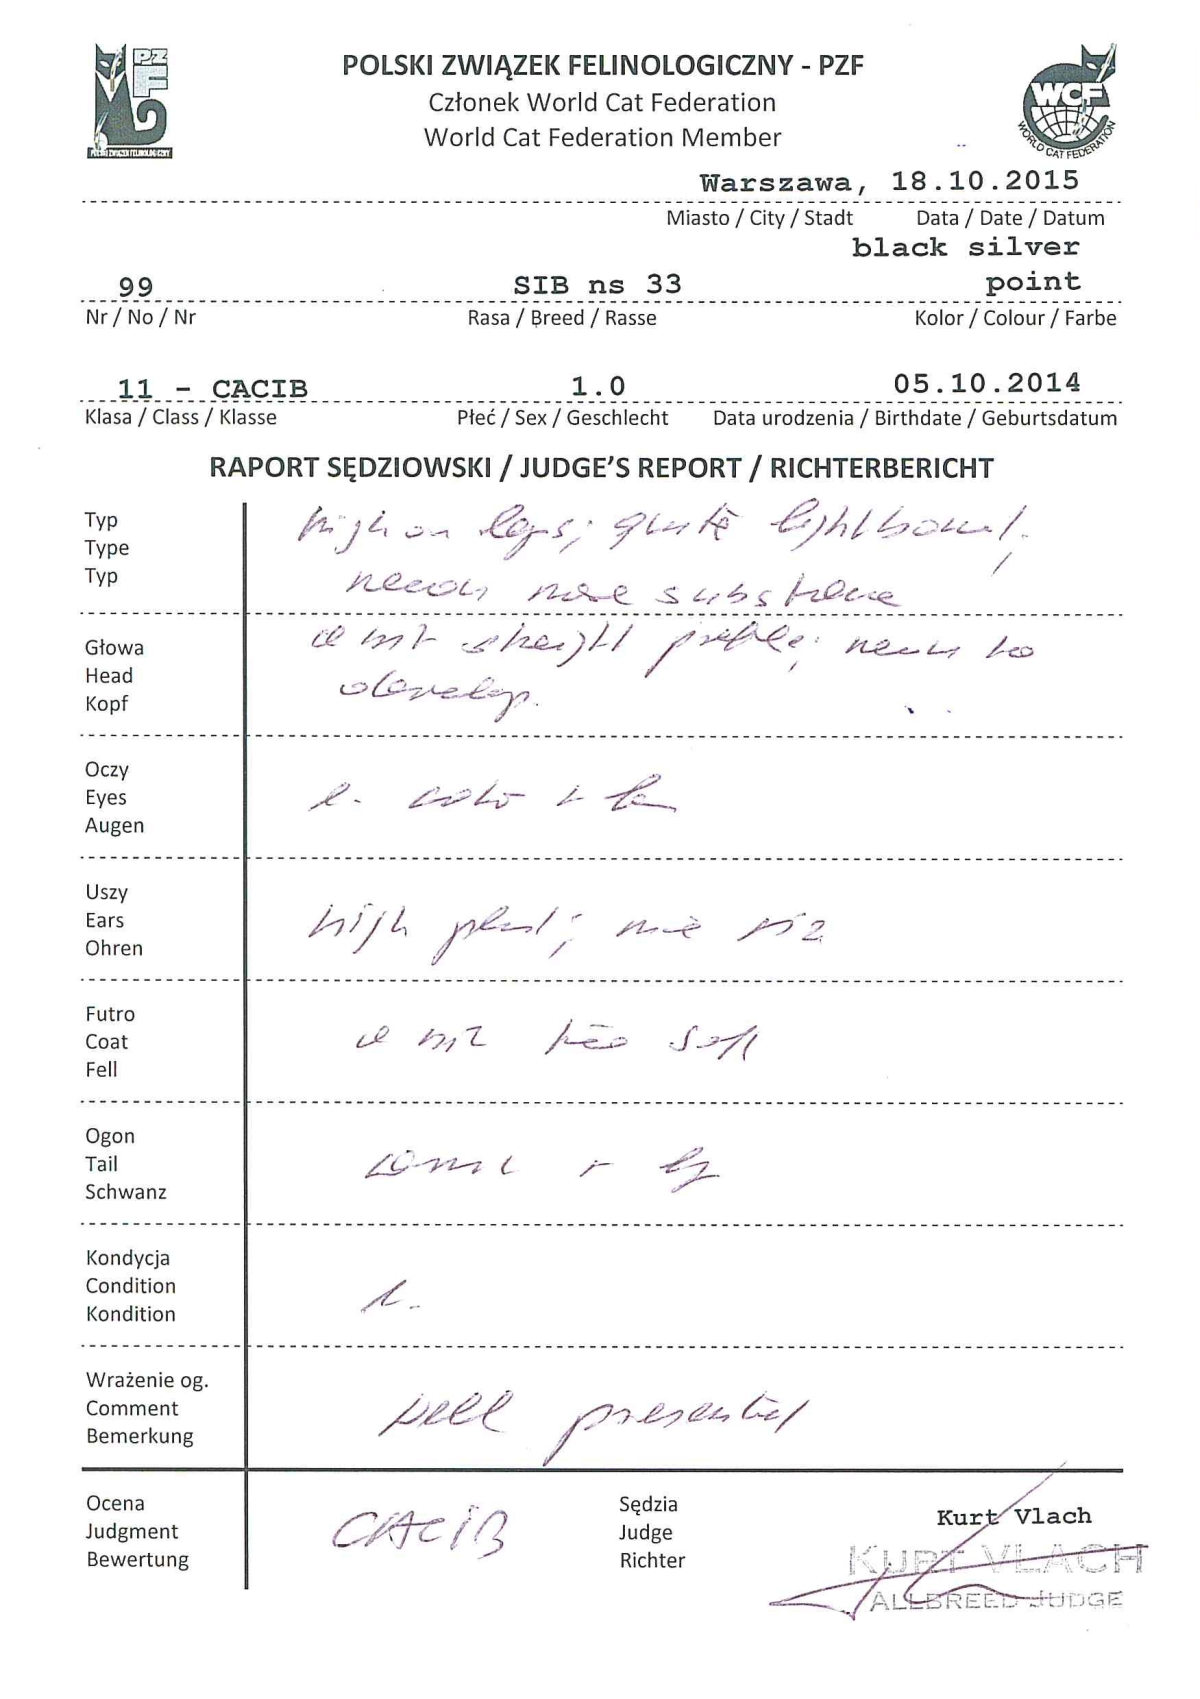 PZ
F
POLSKI ZWIĄZEK FELINOLOGICZNY
POLSKI ZWIĄZEK FELINOLOGICZNY - PZF
Członek World Cat Federation
World Cat Federation Member
WCF
WORLD CAT FEDERATION
Warszawa, 18.10.2015
Miasto / City / Stadt Data / Date / Datum
black silver
99 SIB ns 33 point
Nr / No / Nr Rasa / Breed / Rasse Kolor / Colour / Farbe
11 - CACIB 1.0 05.10.2014
Klasa / Class / Klasse Płeć / Sex / Geschlecht Data urodzenia / Birthdate / Geburtsdatum
RAPORT SĘDZIOWSKI / JUDGE'S REPORT / RICHTERBERICHT
Typ
Type
Typ
high on legs; quite lightboned,
needs more substance
Głowa
Head
Kopf
straight profile; needs to
develop.
Oczy
Eyes
Augen
color
Uszy
Ears
Ohren
high placed;
Futro
Coat
Fell
too soft
Ogon
Tail
Schwanz
Kondycja
Condition
Kondition
Wrażenie og.
Comment
Bemerkung
well presented
Ocena
Judgment
Bewertung
CACIB
Sędzia
Judge
Richter
Kurt Vlach
KURT VLACH
ALLBREED JUDGE